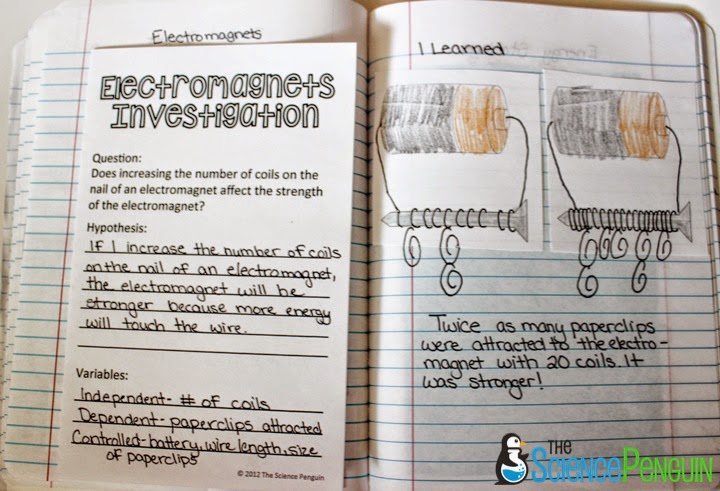 Electromagnets
Electromagnets
Investigation
Question:
Does increasing the number of coils on the
nail of an electromagnet affect the strength
of the electromagnet?
Hypothesis:
If I increase the number of coils
on the nail of an electromagnet,
the electromagnet will be
stronger because more energy
will touch the wire.
Variables:
Independent- # of coils
Dependent- paperclips attracted
Controlled- battery, wire length, size
of paperclips
© 2012 The Science Penguin
I Learned
Twice as many paperclips
were attracted to the electro-
magnet with 20 coils. It
was stronger!
THE
SciencePenguin